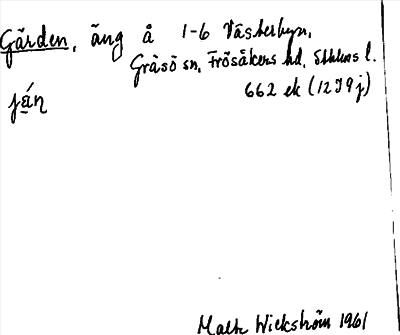 Gärden, äng å 1-6 Västerbyn,
Gräsö sn, Frösåkers hd, Sthlms l.
662 ek (12I9j)
já̱n
Malte Wickström 1961